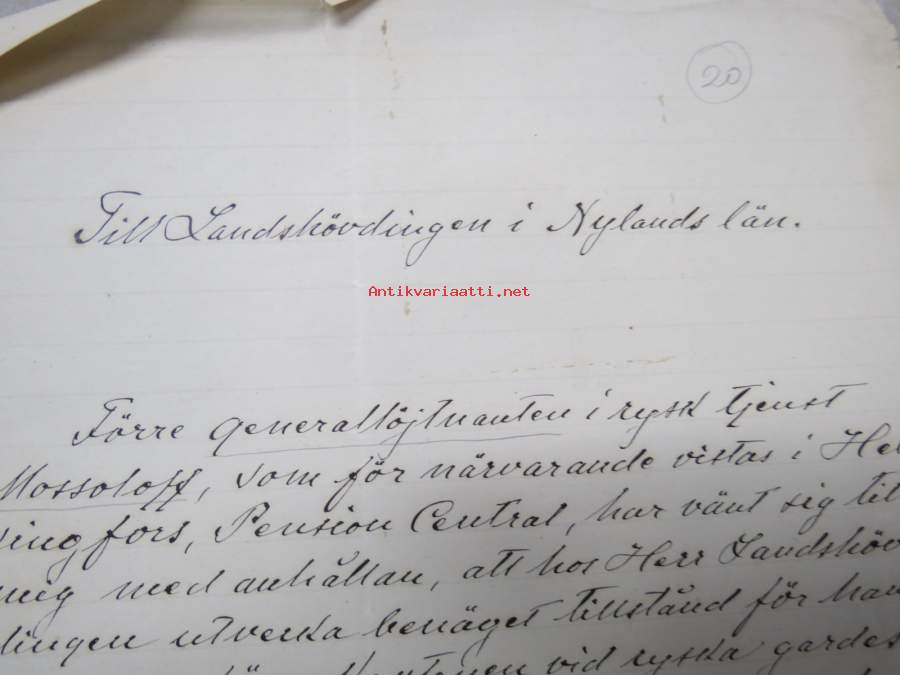 20
Till Landshövdingen i Nylands län.
Antikvariaatti.net
Förre generallöjtnanten i rysk tjenst
Mossoloff, som för närvarande vistas i Hel
singfors, Pension Central, har vänt sig til
mig med anhållan, att hos Herr Landshöv
dingen utverka benäget tillstånd för han
vid ryska gardes